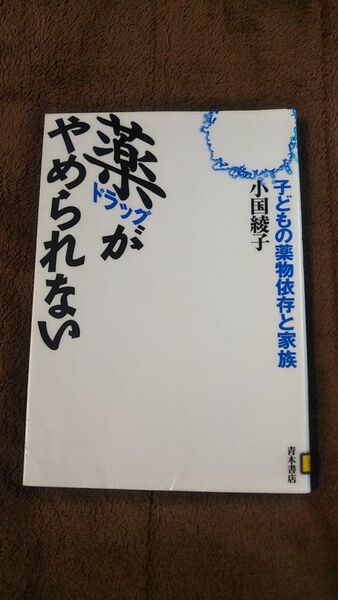 子どもの薬物依存と家族
小国綾子
薬が
ドラッグ
やめられない
青木書店